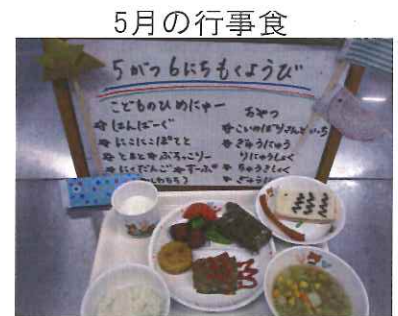 5月の行事食
5がつ6にちもくようび
こどものひめにゅー
はんばーぐ
にこにこぽてと
とまと ぶろっこりー
にくだんごすーぷ
おやつ
こいのぼりさんどいっち
ぎゅうにゅう
りにゅうしょく
ちゅうきしょく